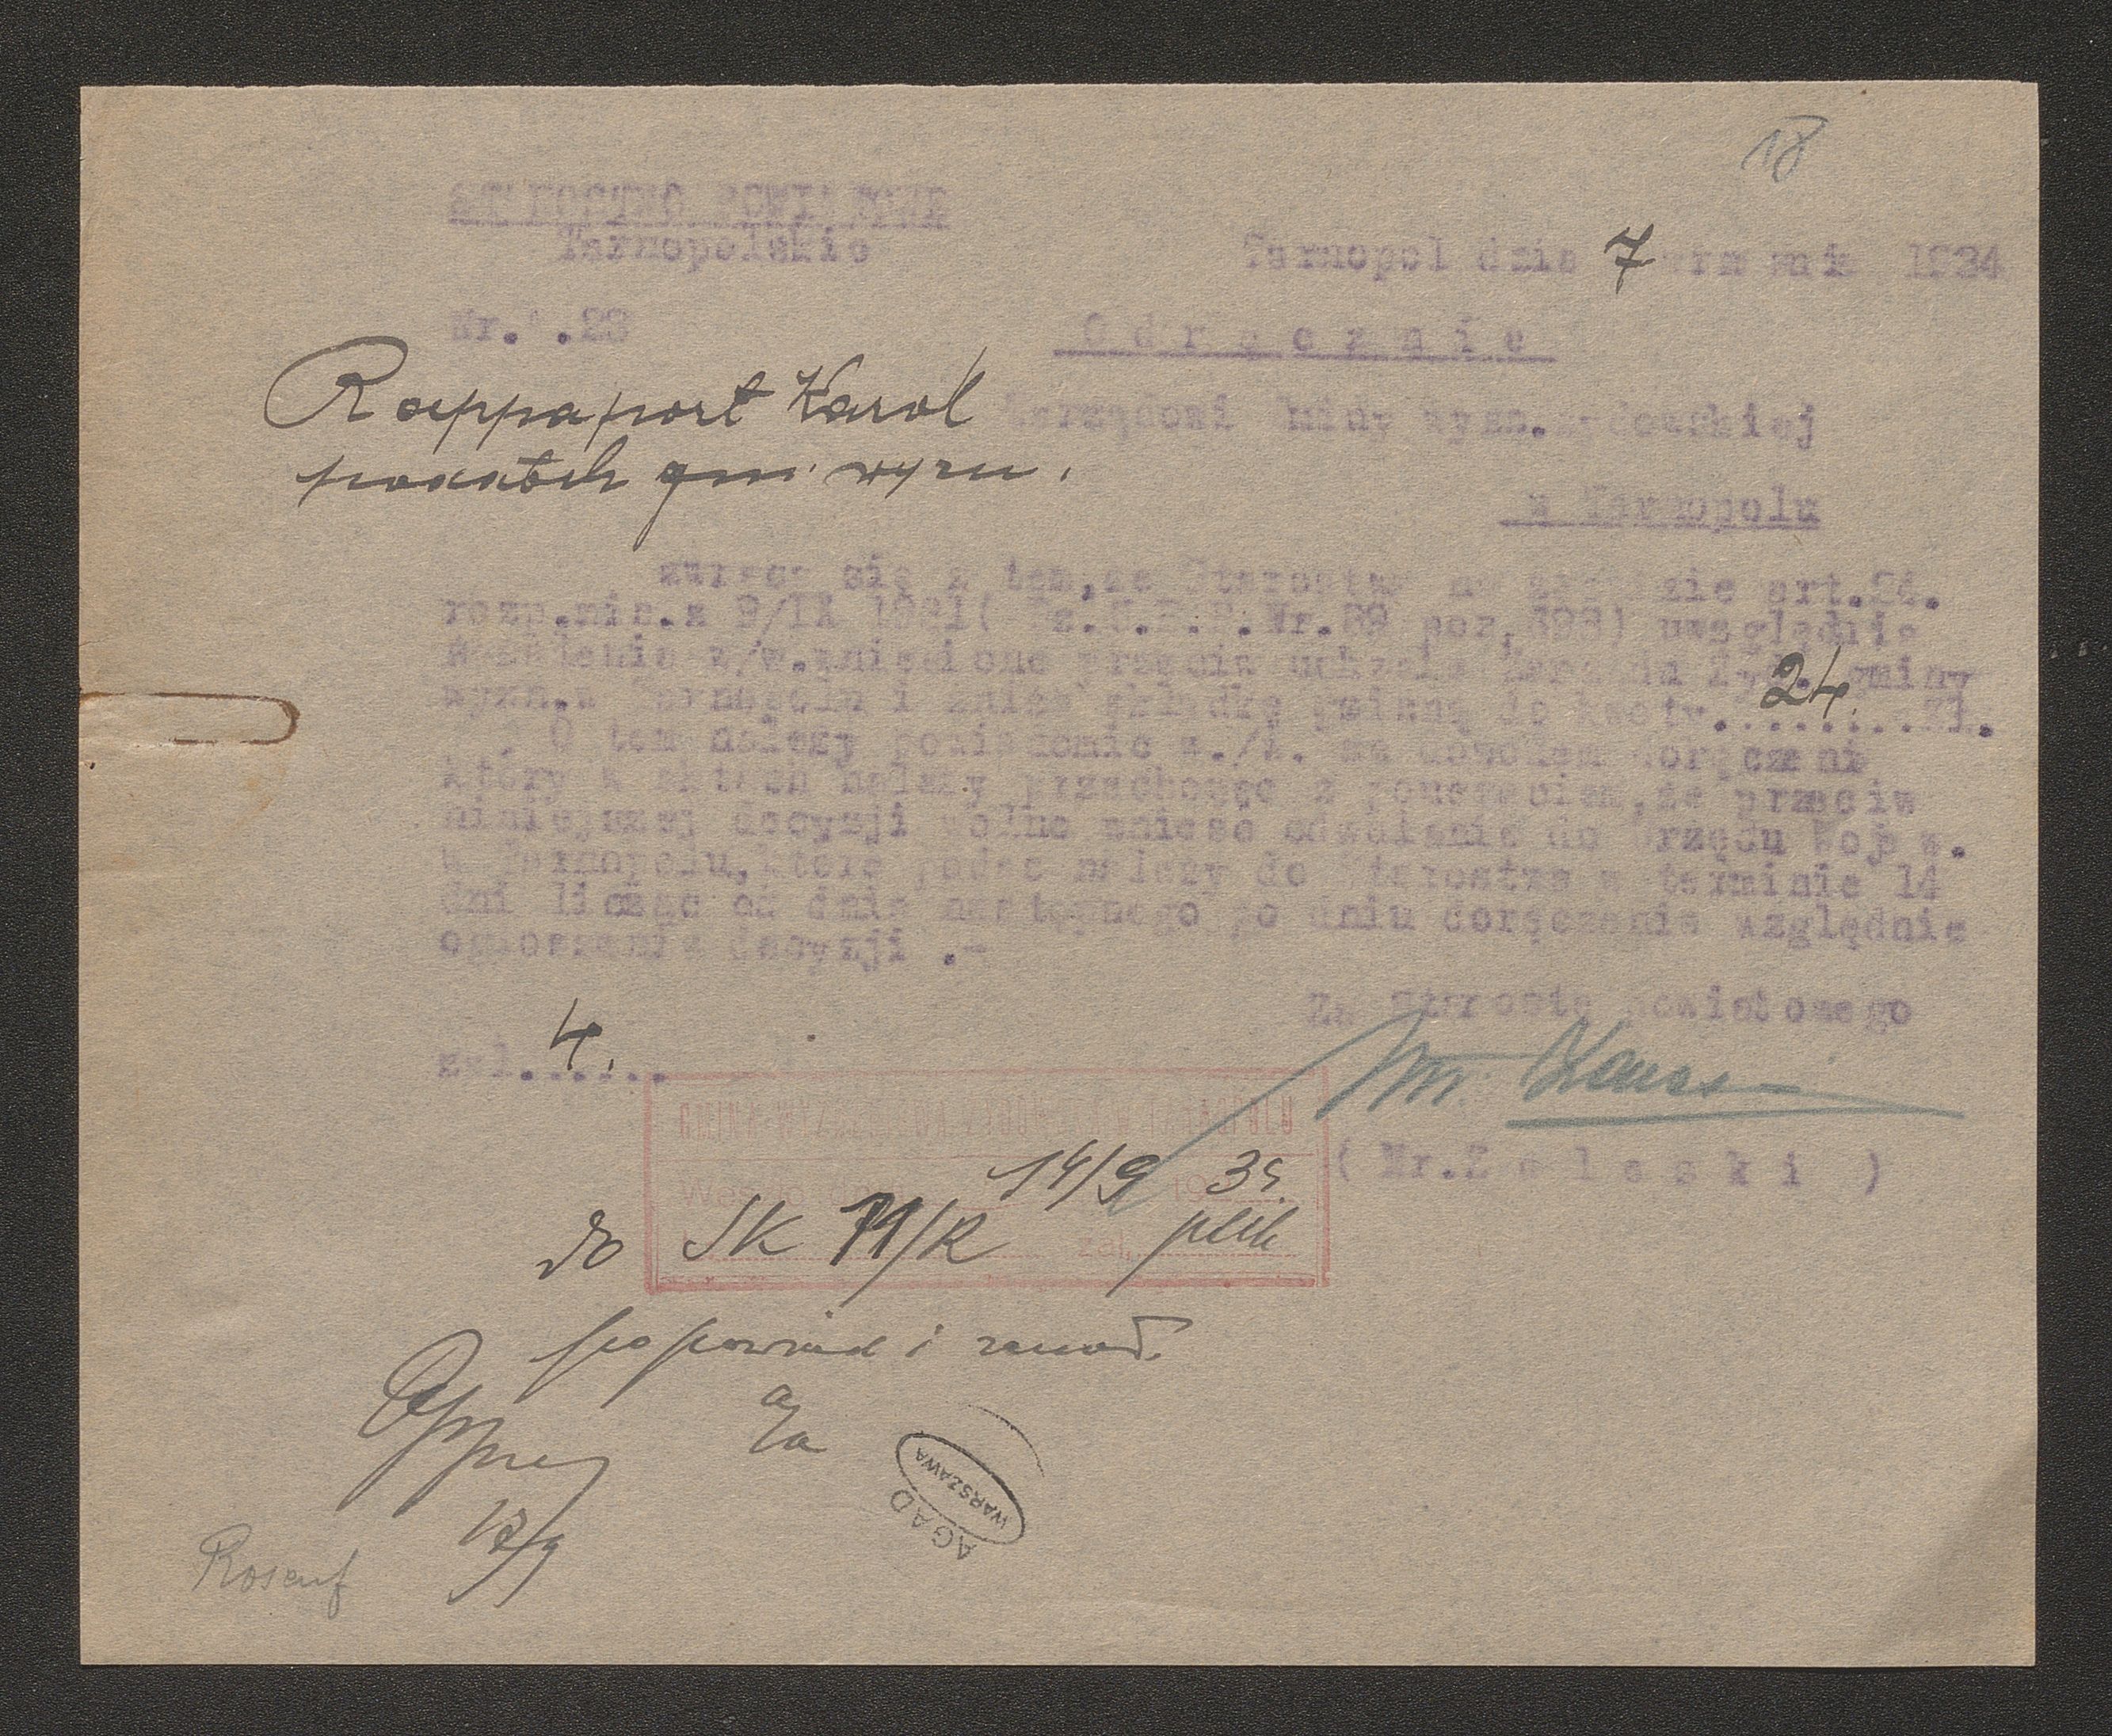 18
STAROSTWO POWIATOWE
Tarnopolskie
Tarnopol dnia 7 września 1934
Nr. .23
Odręcznie
Rappaport Karol
podatek gm. wyzn.
Zarządowi Gminy wyzn. żydowskiej
w Tarnopolu
zwraca się z tem, że Starostwo na zasadzie art.24.
rozp.min.z 9/IX 1931( z.U.R.P.Nr.89 poz,698) uwzględnia
w/w.wniesione przeciw uchwale Zarządu żyd. gminy
wyzn.w Tarnopolu i zniża składkę gminną do kwoty. 24. zł.
O tem należy powiadomić w./w. za dowodem doręczenia
który w aktach należy przechować z pouczeniem,że przeciw
niniejszej decyzji wolno wnieść odwołanie do Urzędu Wojew.
w Tarnopolu,które podać należy do Starostwa w terminie 14
dni licząc od dnia następnego po dniu doręczenia względnie
ogłoszenia decyzji .-
Za Starostę Powiatowego
zał. 4.
(Mr.Zaleski )
GMINA WYZN
14/9 19 34
do SK 71/R zał. plik
a/a
17/9
AGAD
WARSZAWA
Rosenf